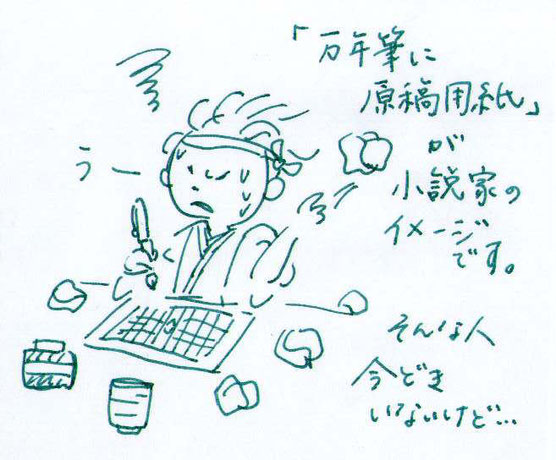 「万年筆に
原稿用紙」
が
小説家の
イメージ
です。
うー
そんな人
今どき
いないけど…